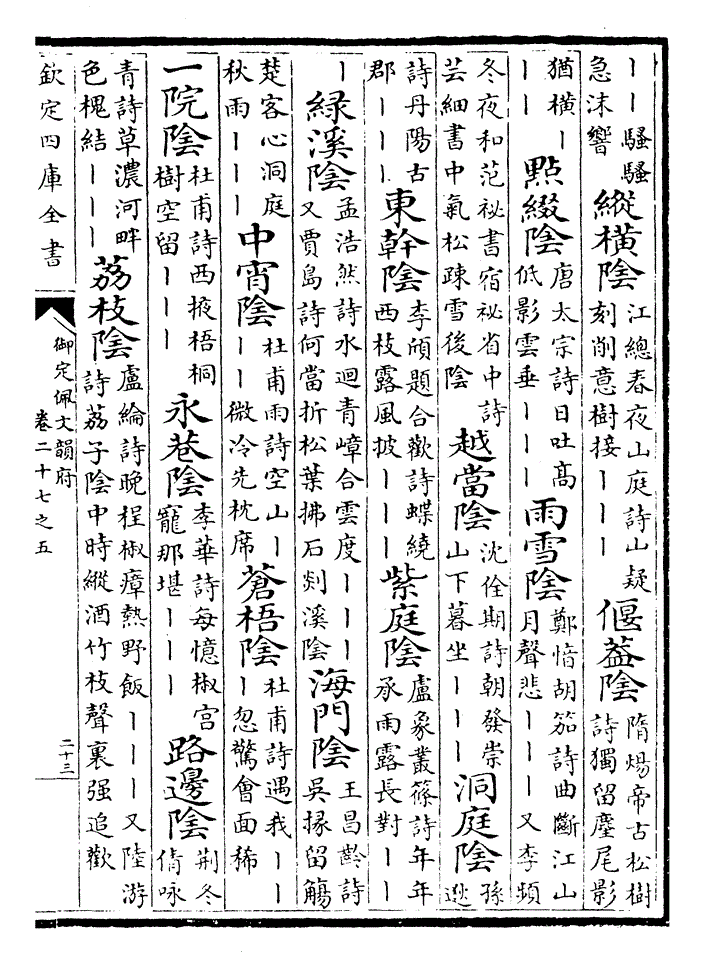 ｜｜騷騷急沫響縱橫陰江總春夜山庭詩山疑刻削意樹接｜｜｜偃葢陰隋煬帝古松樹詩獨留塵尾影
猶橫｜｜｜點綴陰唐太宗詩日吐高低影雲垂｜｜｜雨雪陰鄭愔胡笳詩曲斷江山月聲悲｜｜｜又李頻
冬夜和范祕書宿祕省中詩芸細書中氣松疎雪後陰越當陰沈佺期詩朝發崇山下暮坐｜｜｜洞庭陰孫逖
詩丹陽古郡｜｜｜東幹陰李頎題合歡詩蝶繞西枝露風披｜｜｜紫庭陰盧象叢篠詩年年承雨露長對｜｜
｜綠溪陰孟浩然詩水迴青嶂合雲度｜｜｜又賈島詩何當折松葉拂石剡溪陰海門陰王昌齡詩吳掾留觴
楚客心洞庭秋雨｜｜｜中宵陰杜甫雨詩空山｜｜｜微冷先枕席蒼梧陰杜甫詩遇我｜｜｜忽驚會面稀
一院陰杜甫詩西掖梧桐樹空留｜｜｜永巷陰李華詩每憶椒宮寵那堪｜｜｜路邊陰荆冬倩咏
青詩草濃河畔色槐結｜｜｜荔枝陰盧綸詩晚程椒瘴熱野飯｜｜｜又陸游詩荔子陰中時縱酒竹枝聲裏强追歡
欽定四庫全書
御定佩文韻府
卷二十七之五
二十三